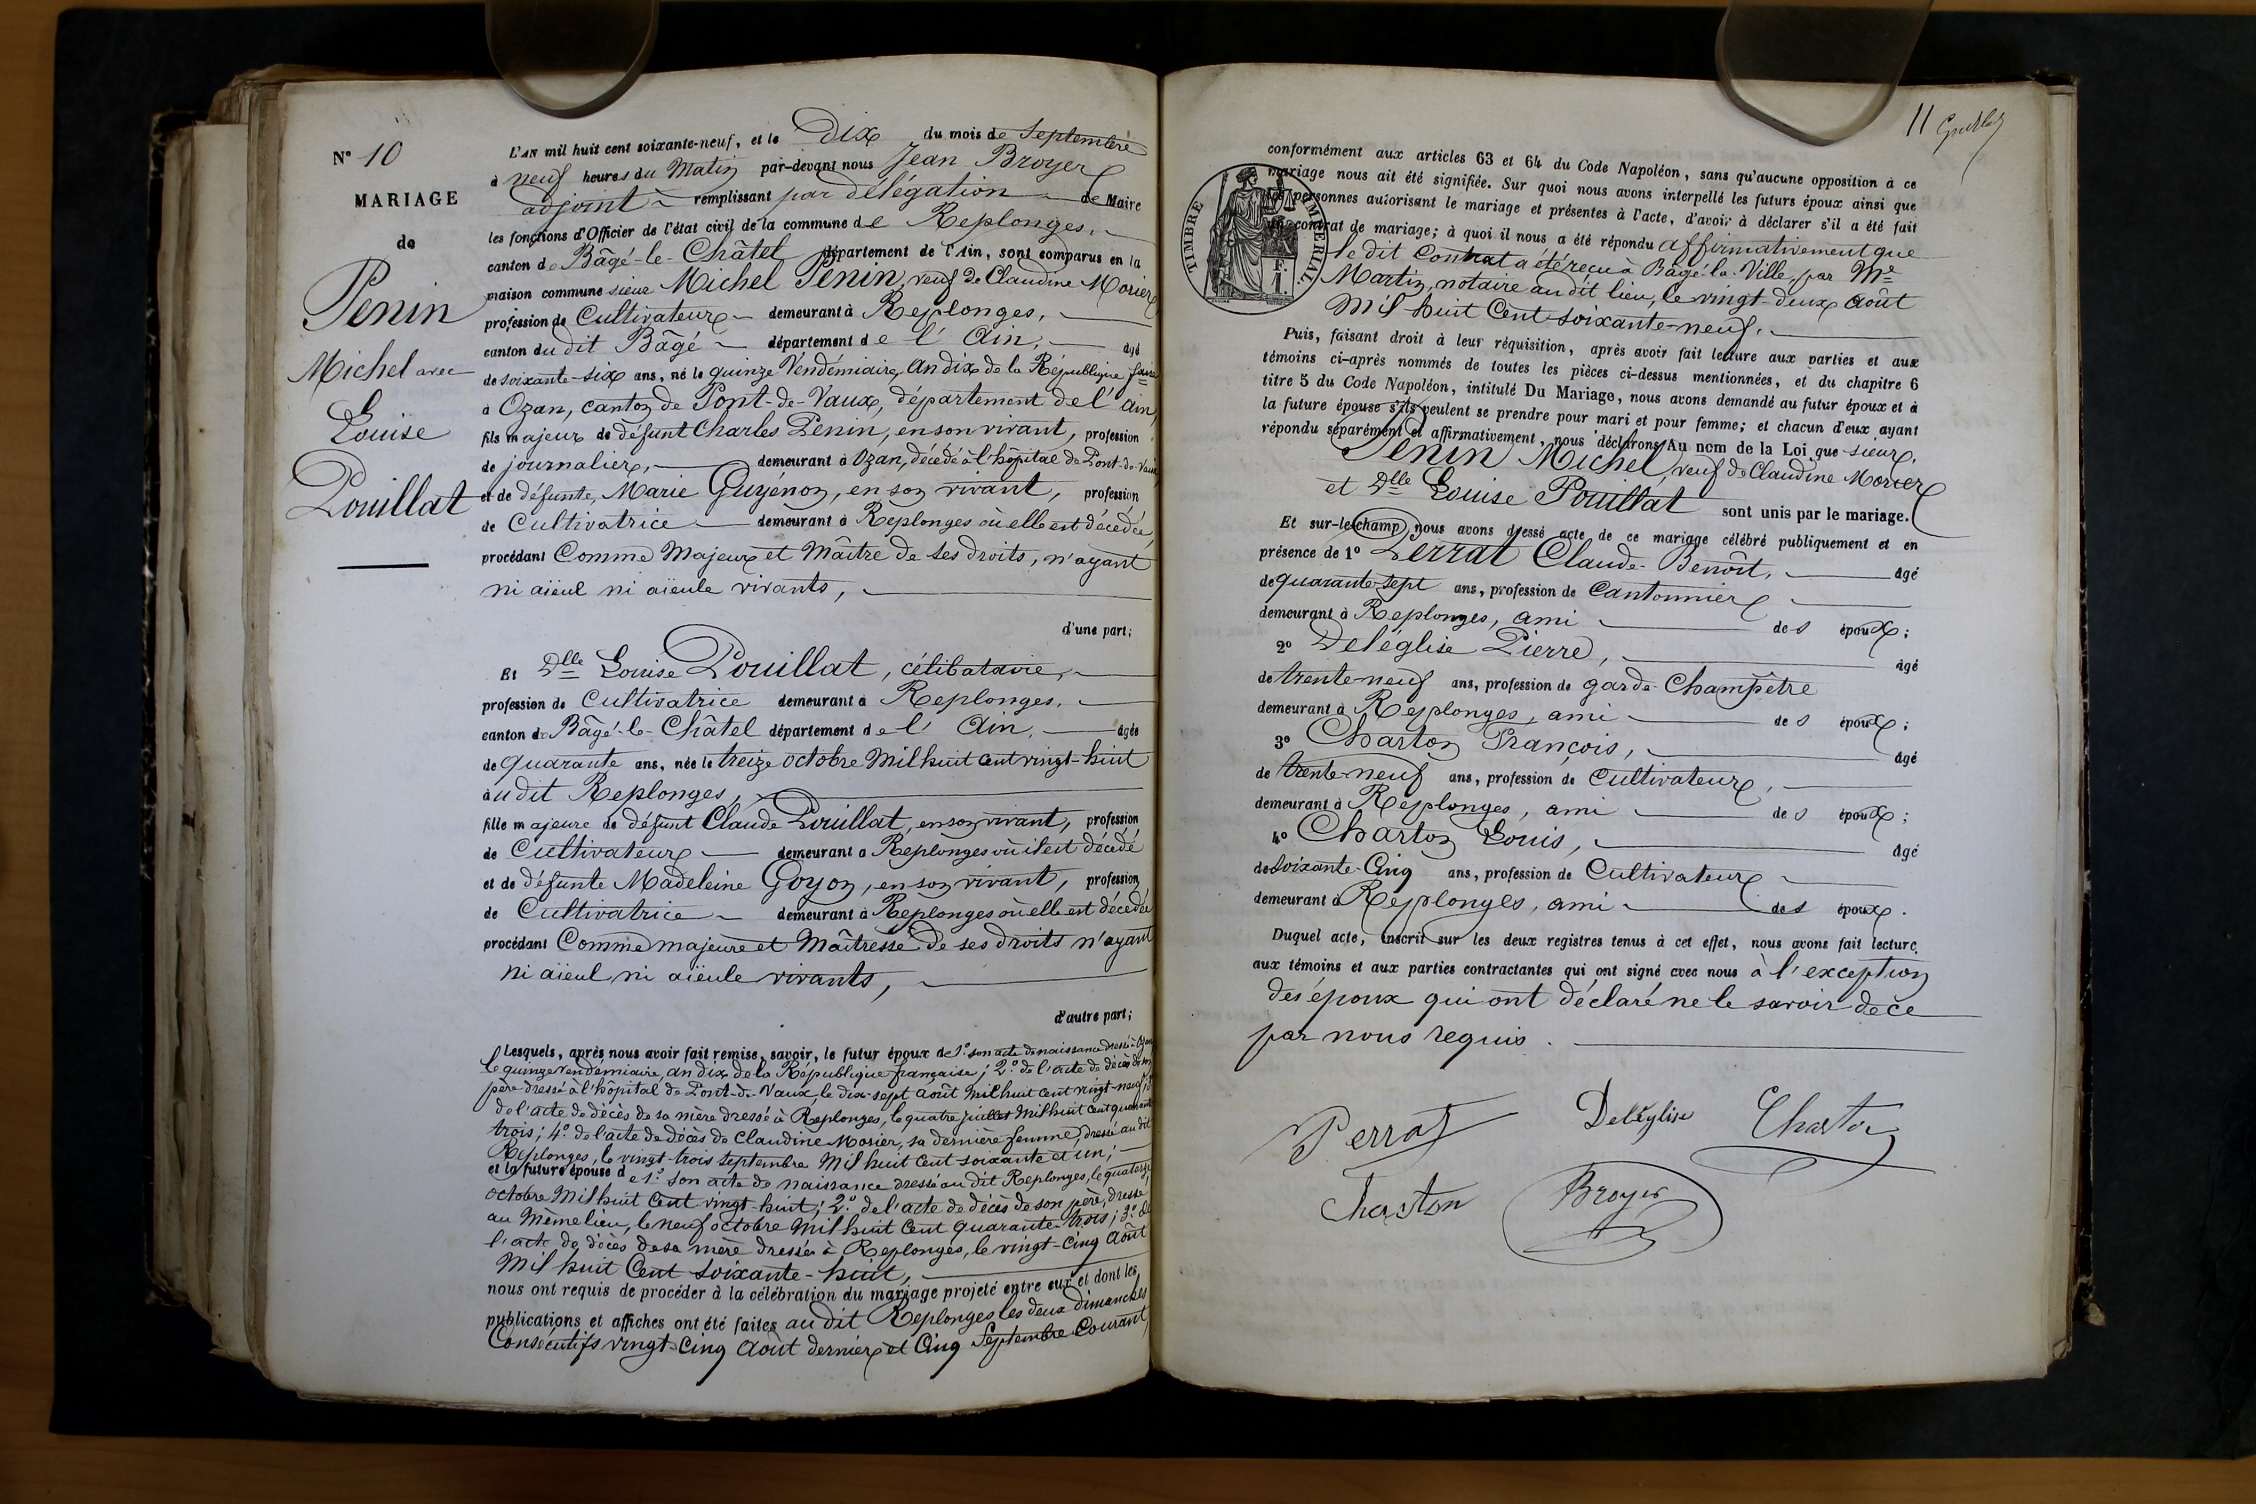 N° 10
MARIAGE
de
Penin
Michel avec
Louise
Pouillat
L'AN mil huit cent soixante-neuf, et le Dix du mois de Septembre
à neuf heures du Matin par-devant nous Jean Broyer
adjoint remplissant par délégation de Maire
les fonctions d'Officier de l'état civil de la commune de Replonges,
canton de Bâgé-le-Châtel département de l'Ain, sont comparus en la
maison commune sieur Michel Penin, veuf de Claudine Morier
profession de Cultivateur demeurant à Replonges,
canton du dit Bâgé département de l'Ain, âgé
de soixante-six ans, né le quinze Vendémiaire, an dix de la République
à Ozan, canton de Pont-de-Vaux, département de l'Ain,
fils majeur de défunt Charles Penin, en son vivant, profession
de journalier, demeurant à Ozan, décédé à l'hôpital de Pont-de-Vaux
et de défunte, Marie Guyénon, en son vivant, profession
de Cultivatrice demeurant à Replonges où elle est décédée,
procédant Comme Majeur et Maître de ses droits, n'ayant
ni aïeul ni aïeule vivants,
d'une part;
Et Dlle Louise Pouillat, célibataire,
profession de Cultivatrice demeurant à Replonges,
canton de Bâgé-le-Châtel département de l'Ain, âgée
de quarante ans, née le treize octobre Mil huit cent vingt-huit
audit Replonges,
fille majeure de défunt Claude Pouillat, en son vivant, profession
de Cultivateur demeurant à Replonges où il est décédé
et de défunte Madeleine Goyon, en son vivant, profession
de Cultivatrice demeurant à Replonges où elle est décédée
procédant Comme majeure et Maîtresse de ses droits n'ayant
ni aïeul ni aïeule vivants,
d'autre part;
Lesquels, après nous avoir fait remise, savoir, le futur époux de 1° son acte de naissance dressé à Ozan
le quinze Vendémiaire, an dix de la République française; 2° de l'acte de décès de son
père dressé à l'hôpital de Pont-de-Vaux, le dix-sept août Mil huit cent vingt-neuf; 3°
de l'acte de décès de sa mère dressé à Replonges, le quatre juillet Mil huit cent quarante
trois; 4° de l'acte de décès de Claudine Morier, sa dernière femme, dressé au dit
Replonges, le vingt-trois septembre Mil huit cent soixante et un;
et la future épouse de 1° son acte de naissance dressé au dit Replonges, le quatorze
octobre Mil huit Cent vingt-huit; 2° de l'acte de décès de son père, dressé
au même lieu, le neuf octobre Mil huit Cent quarante-trois; 3° de
l'acte de décès de sa mère dressé à Replonges, le vingt-cinq Août
Mil huit Cent soixante-huit,
nous ont requis de procéder à la célébration du mariage projeté entre eux et dont les
publications et affiches ont été faites au dit Replonges les deux dimanches
Consécutifs vingt-Cinq Août dernier et Cinq Septembre Courant,
11
TIMBRE IMPÉRIAL
conformément aux articles 63 et 64 du Code Napoléon, sans qu'aucune opposition à ce
mariage nous ait été signifiée. Sur quoi nous avons interpellé les futurs époux ainsi que
les personnes autorisant le mariage et présentes à l'acte, d'avoir à déclarer s'il a été fait
un contrat de mariage; à quoi il nous a été répondu affirmativement que
le dit Contrat a été reçu à Bâgé-la-Ville, par Me
Martin, notaire au dit lieu, le vingt-deux Août
Mil huit Cent soixante-neuf.
Puis, faisant droit à leur réquisition, après avoir fait lecture aux parties et aux
témoins ci-après nommés de toutes les pièces ci-dessus mentionnées, et du chapitre 6
titre 5 du Code Napoléon, intitulé Du Mariage, nous avons demandé au futur époux et à
la future épouse s'ils veulent se prendre pour mari et pour femme; et chacun d'eux ayant
répondu séparément et affirmativement, nous déclarons Au nom de la Loi que sieur,
Penin Michel, veuf de Claudine Morier
et Dlle Louise Pouillat sont unis par le mariage.
Et sur-le-champ nous avons dressé acte de ce mariage célébré publiquement et en
présence de 1° Perrat Claude-Benoît, âgé
de quarante-sept ans, profession de Cantonnier
demeurant à Replonges, ami des époux;
2° Deléglise Pierre, âgé
de trente-neuf ans, profession de garde-Champêtre
demeurant à Replonges, ami des époux;
3° Charton François, âgé
de trente-neuf ans, profession de Cultivateur,
demeurant à Replonges, ami des époux;
4° Charton Louis, âgé
de Soixante-Cinq ans, profession de Cultivateur
demeurant à Replonges, ami des époux.
Duquel acte, inscrit sur les deux registres tenus à cet effet, nous avons fait lecture
aux témoins et aux parties contractantes qui ont signé avec nous à l'exception
des époux qui ont déclaré ne le savoir de ce
par nous requis.
Perrat Deléglise Charton
Charton Broyer